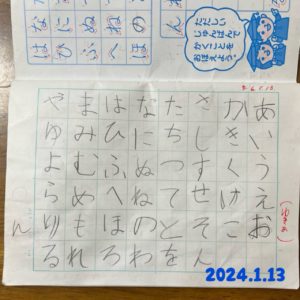 なにぬねの
はひふへほ
ん
ただしい
じゅんばんで
かくことを
おぼえよう。
あいうえお
かきくけこ
さしすせそ
たちつてと
なにぬねの
はひふへほ
まみむめも
やゆよらり
るれろわをん
ん
2024.1.13